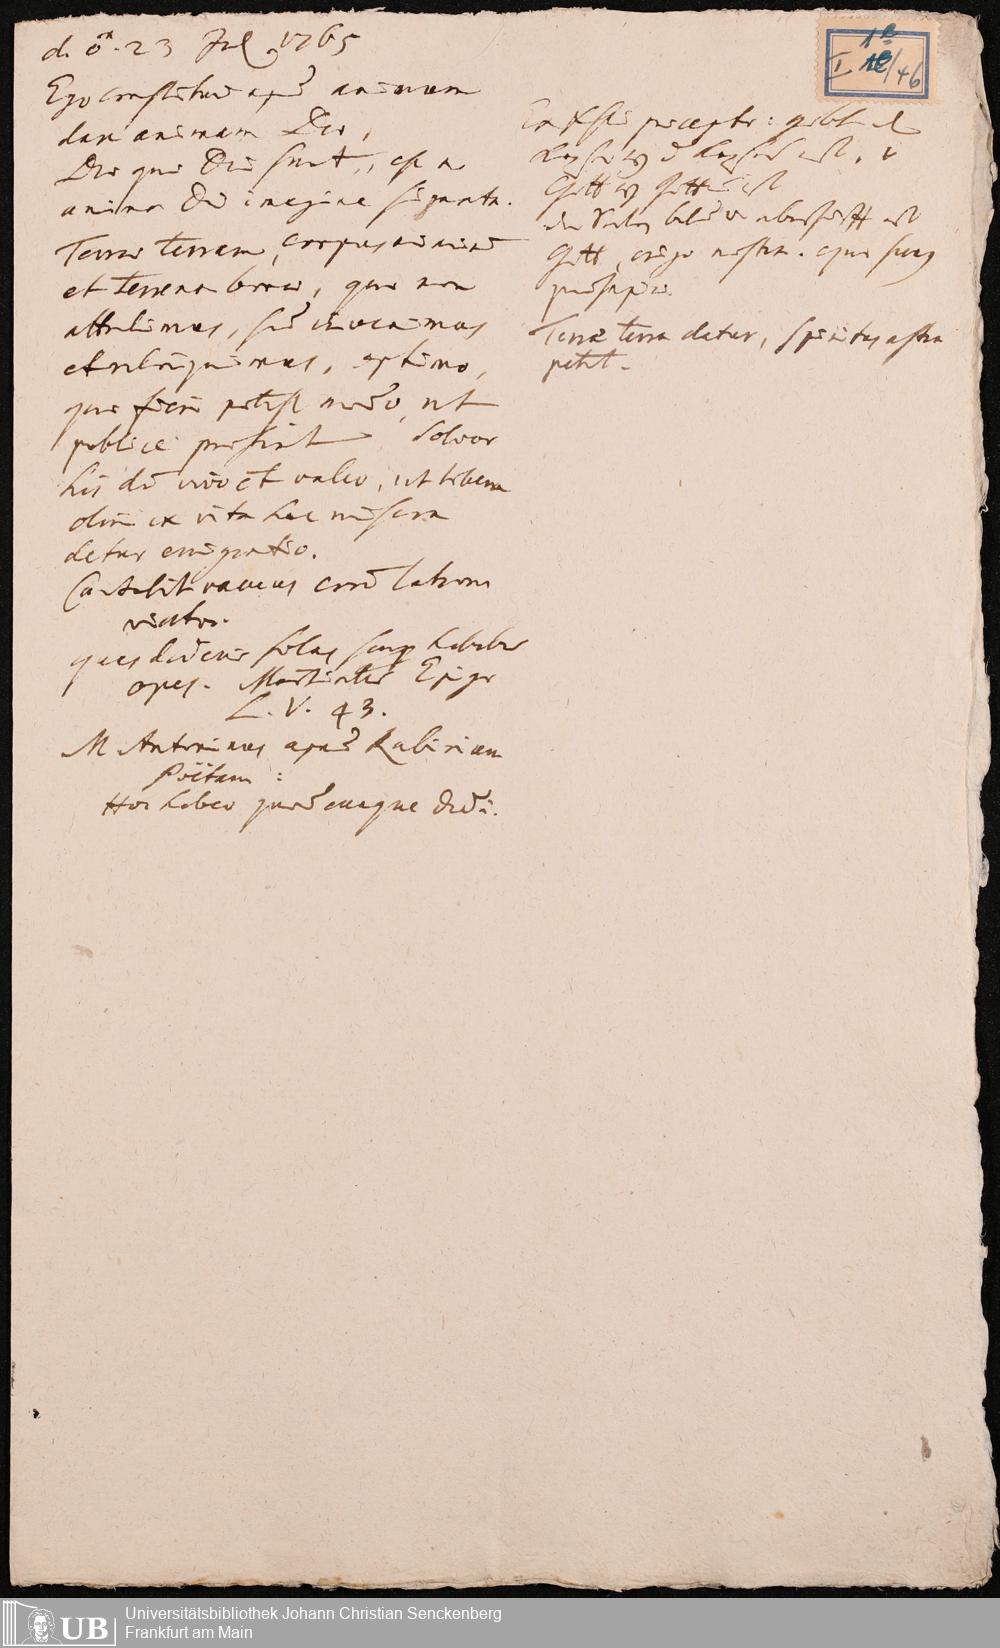 d. 23 Jul 1765
Ego constitui apud animum
dare animam Deo,
Deo quae Dei sunt, est n
anima Dei imagine signata.
Terrae terram, corpus
et terrena bona, quae non
attulimus, sed
et relinquimus, optimo,
quo fieri potest modo, ut
publice prosint Solvor
his dū vivo et valeo, ut libera
olim ex vita hac misera
detur emigratio.
Cantabit vacuus coram latrone
viator.
quas dederis solas semp habebis
opes. Martialis Epigr
L. V. 43.
M Antonius apud Rabirium
Poëtam :
Hoc habeo quodcunque dedi.
I 46
Ex Xsti praecepto: gebt d
Kayser w d Kaysers ist, u
Gott w Gottes ist
Gott, origo nostra.
Terrae terra datur, spiritus astra
petit.
Universitätsbibliothek Johann Christian Senckenberg
Frankfurt am Main
UB